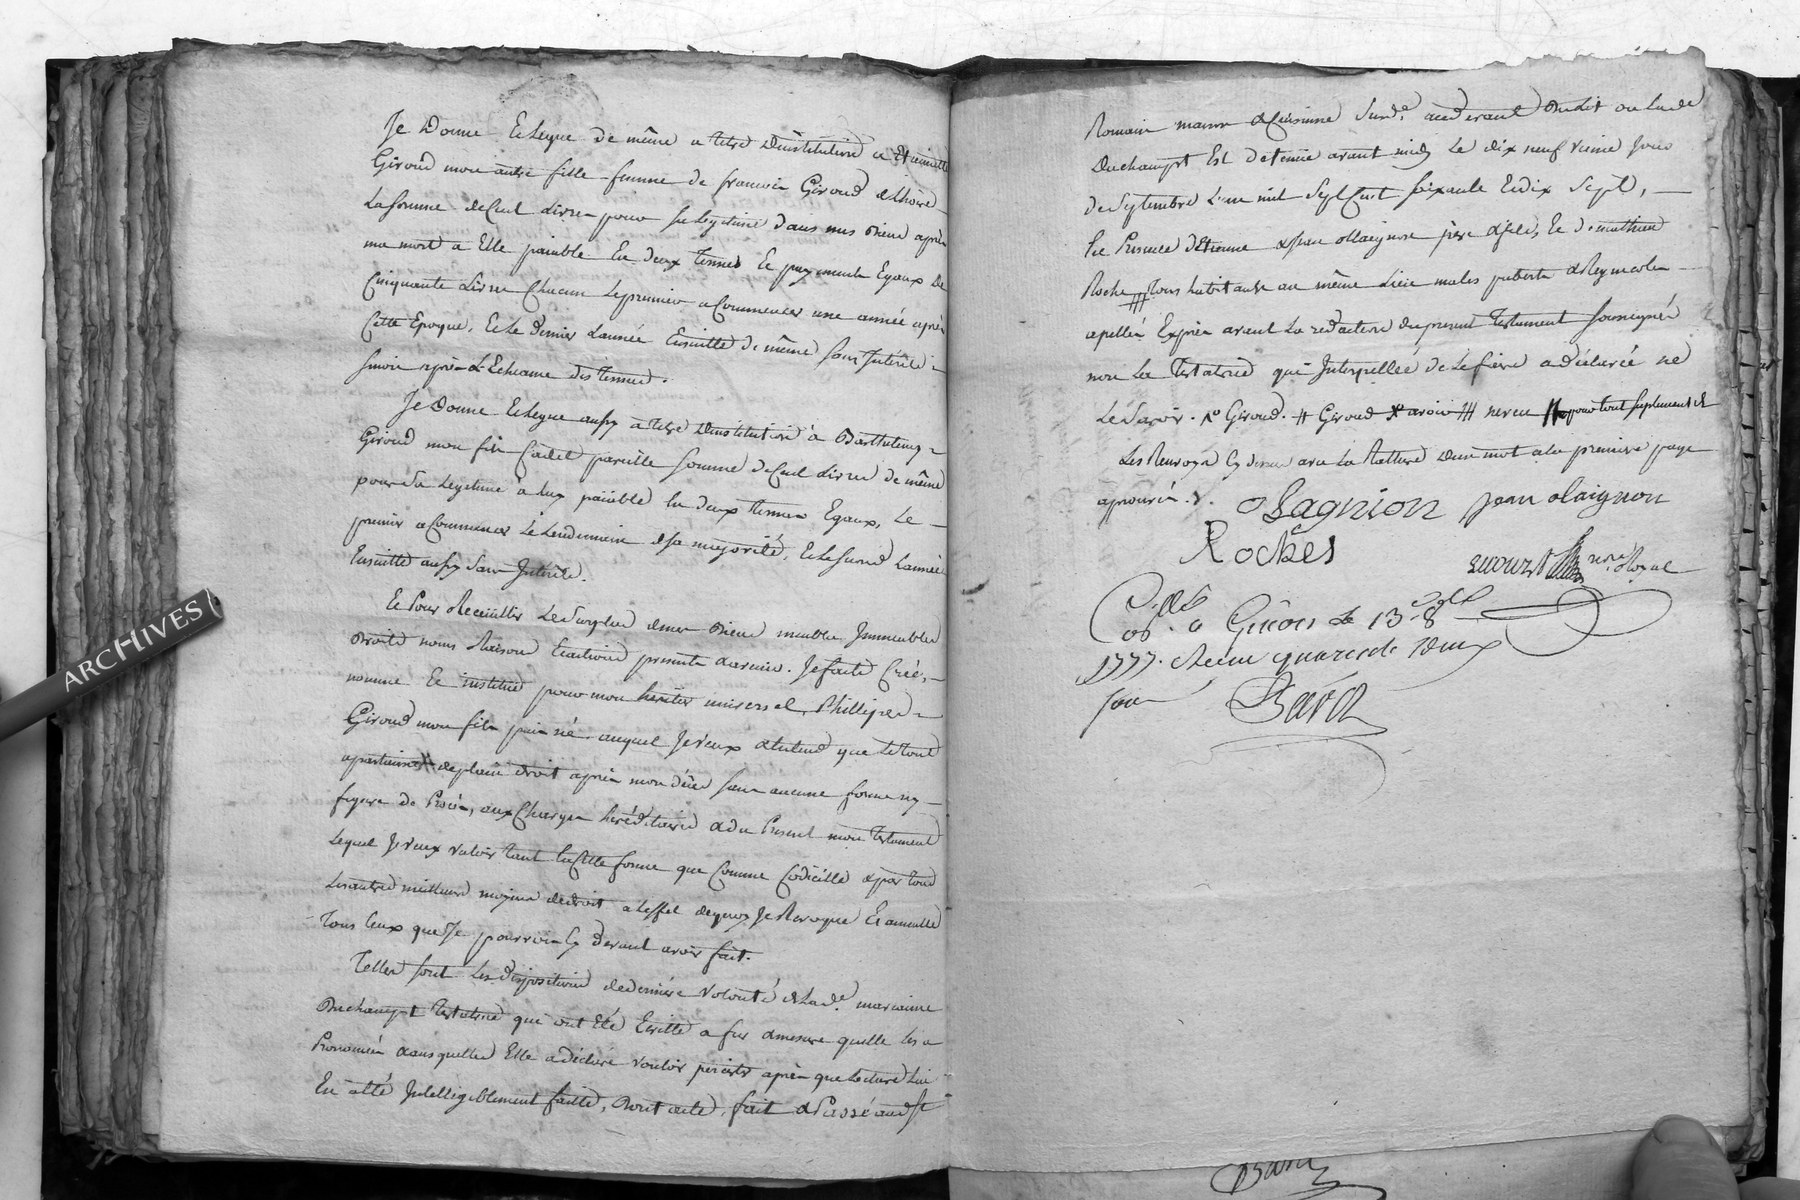 Je Donne & Legue de même a titre Dinstitution a Etiennette
Giroud mon autre fille femme de francois Giroud
La somme de Cent Livres pour sa Legitime dans mes Biens après
ma mort a Elle paiable En deux termes & payements Egaux De
Cinquante Livres Chacun Le premier a Commencer une année après
Cette Epoque, & Le Dernier Lannée Ensuitte de même sans Intérêts
sinon après L'Echeance des termes.
Je Donne & Legue aussy a titre Dinstitution à Barthelemy
Giroud mon fils Cadet pareille somme de Cent Livres de même
pour sa Legitime à Luy paiable En deux termes Egaux, Le
premier a Commencer Le Lendemain de sa majorité, & Le second Lannée
Ensuitte aussy sans Intérêts.
Et Pour Recueillir Le Surplus de mes Biens meubles Immeubles
Droits noms Raisons & actions presents & avenir. Je fait Créé,
nomme & institue pour mon heritier universel, Phillipes
Giroud mon fils puiné auquel Je veux & entend que Le tout
apartienne de plain droit après mon décès sans aucune forme ny
figure de Procès, aux Charges héréditaires & du Present mon testament
Lequel Je veux valoir tant En Cette forme que Comme Codicille & par tous
Les autres meilleurs moyens de droit a Leffet de quoy Je Revoque & annulle
Tous Ceux que Je pourrois Cy devant avoir fait.
Telles sont Les Dispositions de derniere volonté de Lade. marianne
Duchampt testatrice qui ont Eté Ecrittes a fur & mesure quelle les a
Prononcées & ausquelles Elle a déclaré vouloir persister après que Lecture Lui
En a été Intelligiblement faitte, Dont acte, fait & Passé aud. St
Romain maison & Cuisine Susd. audevant Du Lit ou Lade
Duchampt Est detenüe avant midy Le dix neuf vieme Jour
de Septembre L'an mil Sept Cent soixante & dix Sept,
En Presence d'Etienne & Jean Magnon père & fils, & de mathieu
Roche /// Tous habitants au même Lieu males puberts & Regnicoles
apellés Exprès avant La redaction du present testament soussignés
non La testatrice qui Interpellée de Le faire a déclarée ne
Le Savoir. x Giroud. # Giroud x avoir /// neveu pour tout suplement &
Les Renvoys Cy dessus avec La Rature Dun mot a la premiere page
aprouvés.
Magnion Jean Maignon
Roches
nre. Royal
Collé à le 13 8
1777. Recu quarante deux
sous
Barou